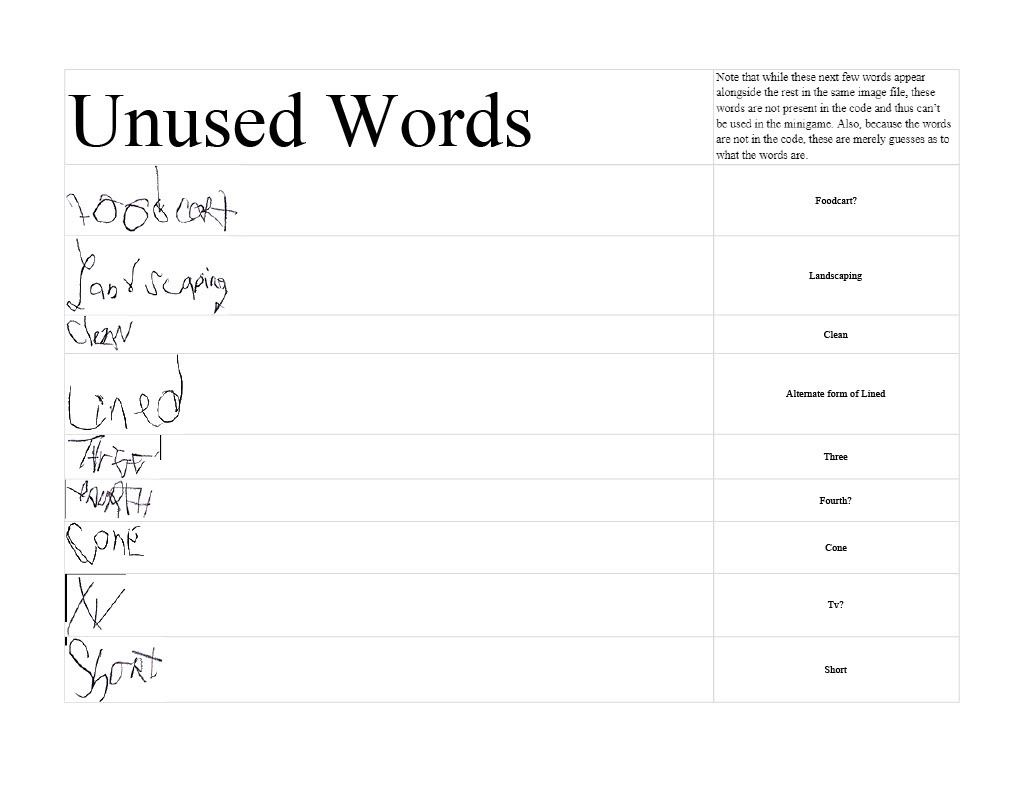 Unused Words
Note that while these next few words appear
alongside the rest in the same image file, these
words are not present in the code and thus can't
be used in the minigame. Also, because the words
are not in the code, these are merely guesses as to
what the words are.
Foodcart
Foodcart?
Landscaping
Landscaping
Clean
Clean
Lined
Alternate form of Lined
Three
Three
Fourth?
Cone
Cone
Tv?
Short
Short